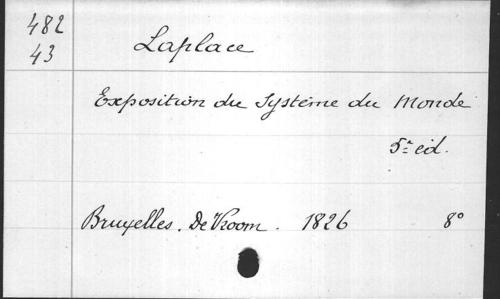 482
43
Laplace
Exposition du Système du Monde
5e éd.
Bruxelles. De Vroom. 1826 8°